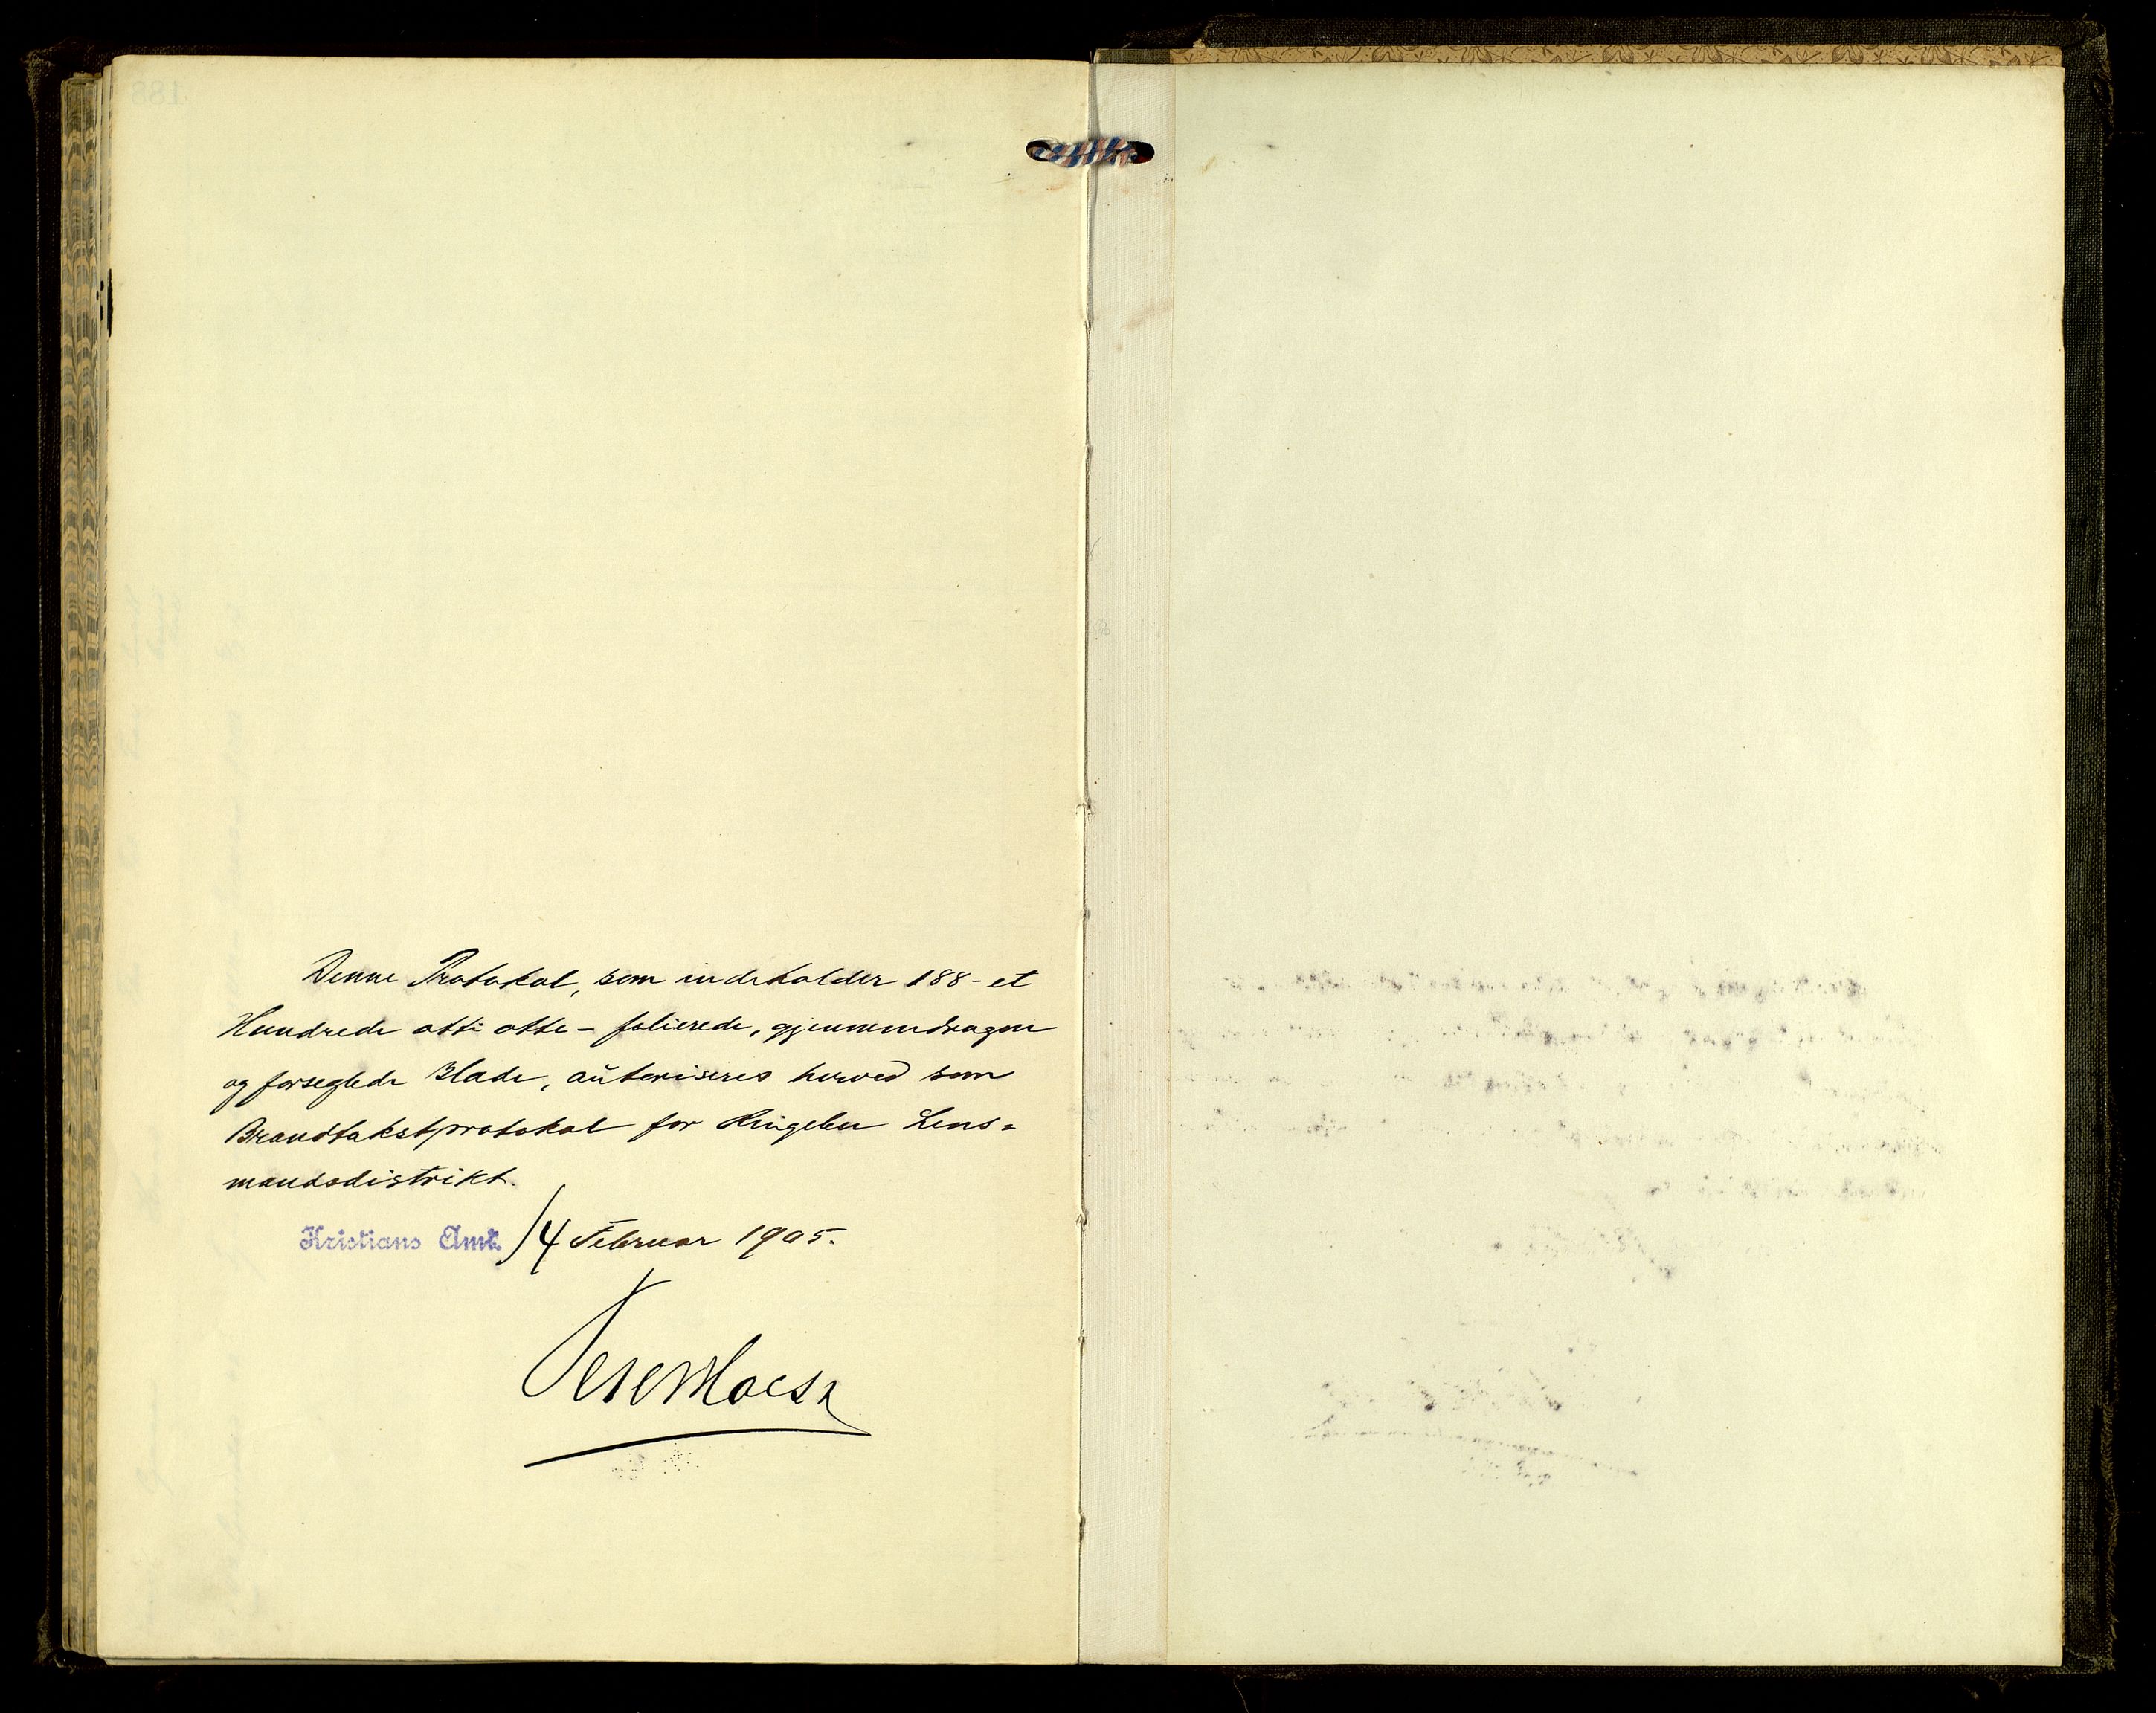 Denne Protokol, som indeholder 188 - et
Hundrede otti otte - folierede, gjennemdragne
og forseglede Blade, auteriseres herved som
Brandtakstprotokol for Ringebu Lens=
mandsdistrikt.
Kristians Amt. 4 Februar 1905.